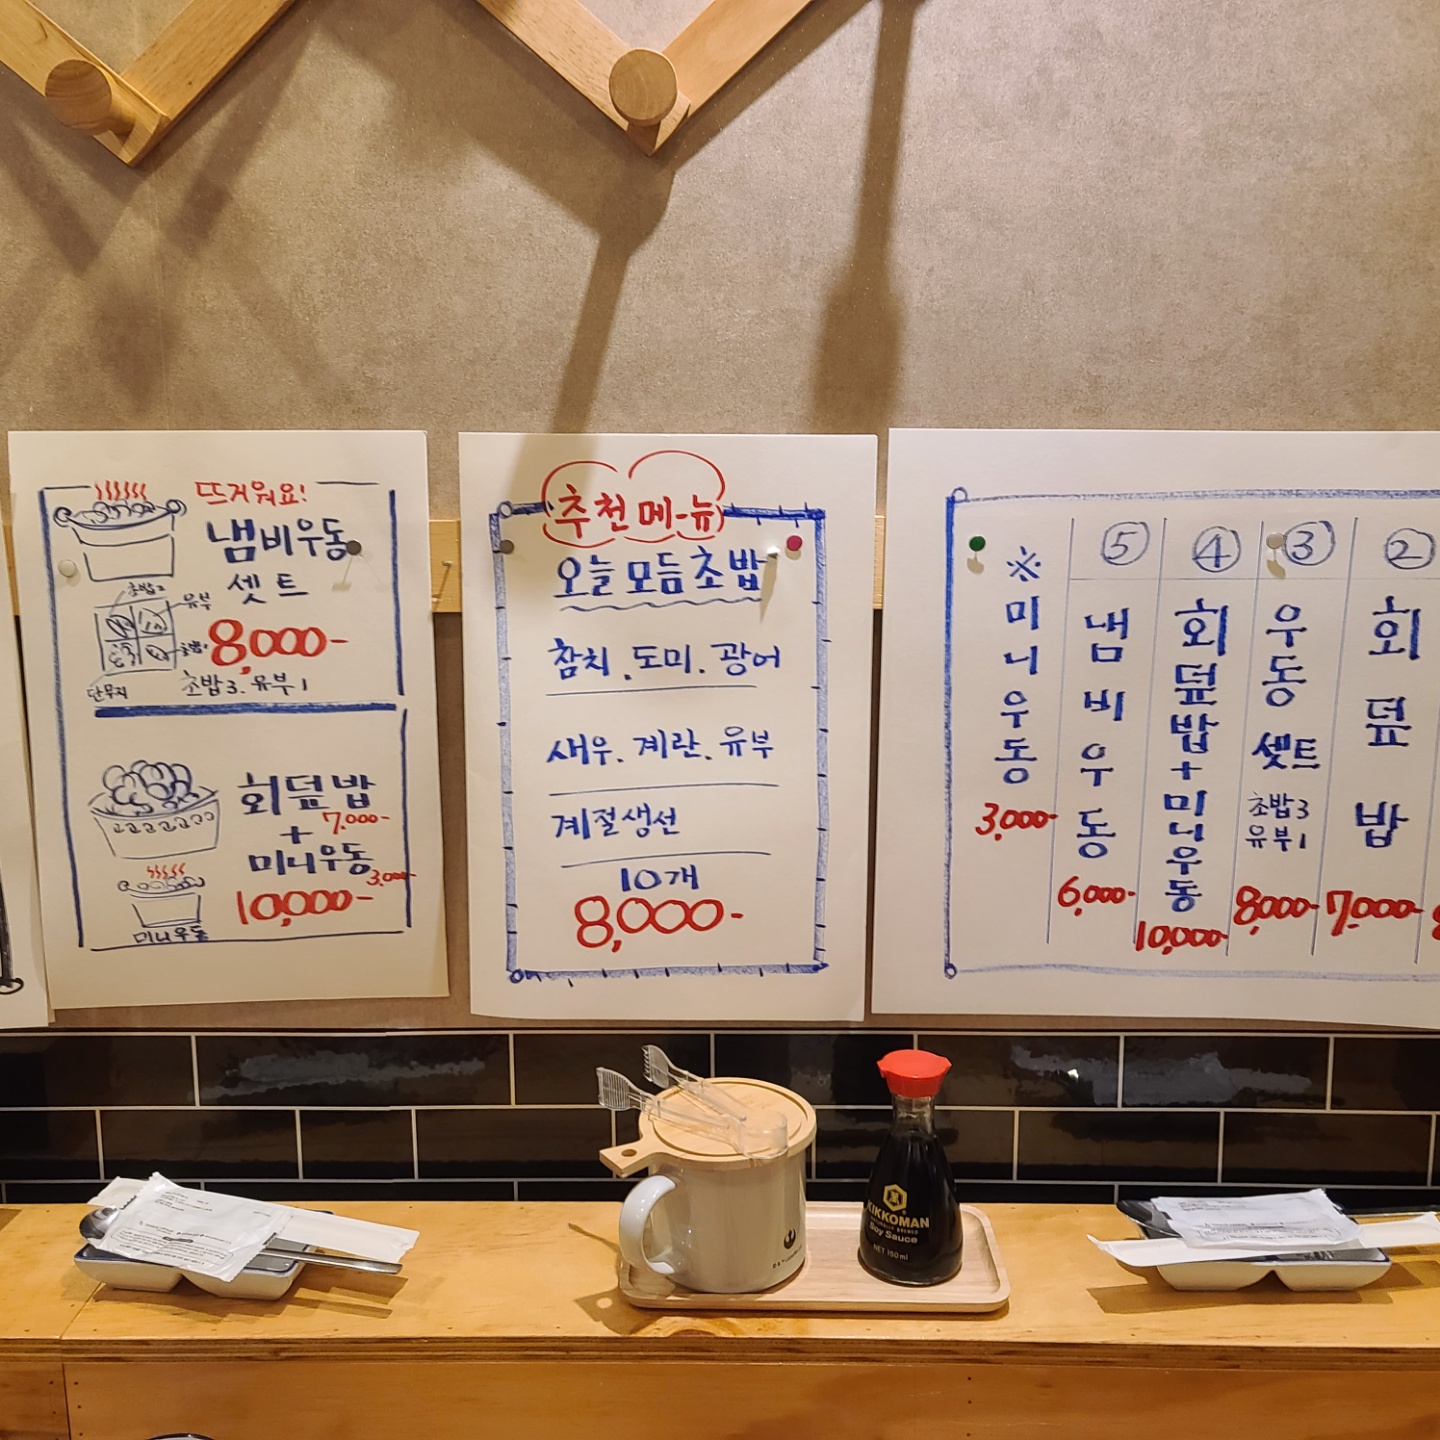 뜨거워요!
냄비우동
셋트
초밥2
유부
8,000-
단무지
초밥3. 유부1
회덮밥
7,000-
+
미니우동
3,000-
10,000-
미니우동
추천메뉴
오늘 모듬초밥
참치. 도미. 광어
새우. 계란. 유부
계절생선
10개
8,000-
※미니우동
3,000-
⑤
냄비우동
6,000-
④
회덮밥+미니우동
10,000-
③
우동셋트
초밥3
유부1
8,000-
②
회덮밥
7,000-
KIKKOMAN
NATURALLY BREWED
Soy Sauce
NET 150ml